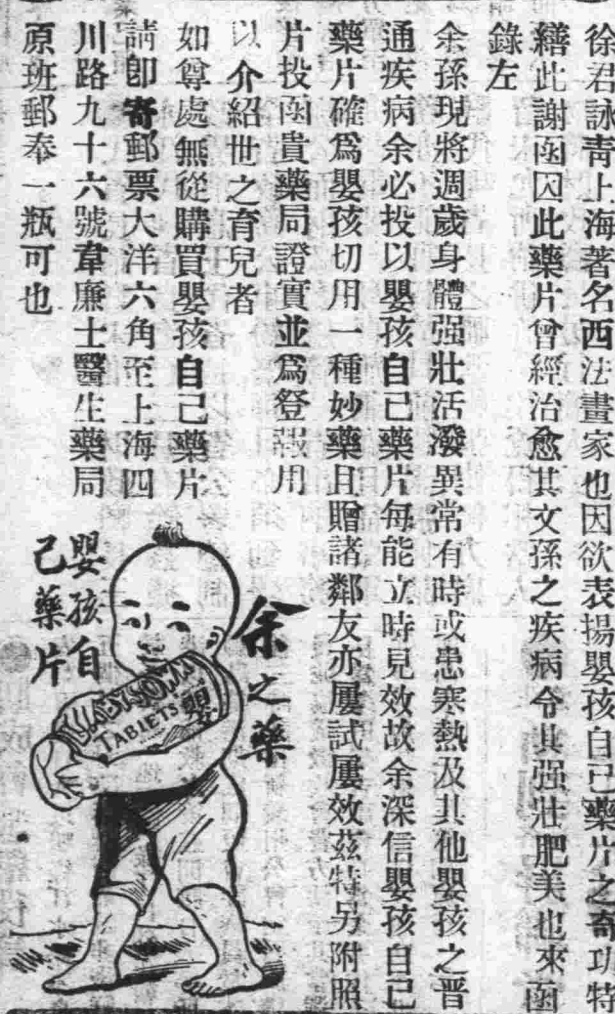 徐君詠靑上海著名西法畫家也因欲表揚嬰孩自己藥片之奇功特
繕此謝函因此藥片曾經治愈其文孫之疾病令其强壯肥美也來函
錄左
余孫現將週歲身體强壯活潑異常有時或患寒熱及其他嬰孩之普
通疾病余必投以嬰孩自己藥片每能立時見效故余深信嬰孩自己
藥片確爲嬰孩切用一種妙藥且贈諸鄰友亦屢試屢效茲特另附照
片投函貴藥局證實並爲登報用
以介紹世之育兒者
如尊處無從購買嬰孩自己藥片
請卽寄郵票大洋六角至上海四
川路九十六號韋廉士醫生藥局
原班郵奉一瓶可也
余之藥
嬰孩自
己藥片
TABLETS
嬰